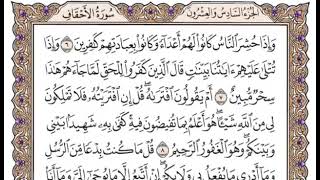 الجزء السادس والعشرون سورة الأحقاف
وَإِذَا حُشِرَ ٱلنَّاسُ كَانُوا۟ لَهُمْ أَعْدَآءً وَكَانُوا۟ بِعِبَادَتِهِمْ كَٰفِرِينَ ٦ وَإِذَا
تُتْلَىٰ عَلَيْهِمْ ءَايَٰتُنَا بَيِّنَٰتٍ قَالَ ٱلَّذِينَ كَفَرُوا۟ لِلْحَقِّ لَمَّا جَآءَهُمْ هَٰذَا
سِحْرٌ مُّبِينٌ ٧ أَمْ يَقُولُونَ ٱفْتَرَىٰهُ قُلْ إِنِ ٱفْتَرَيْتُهُۥ فَلَا تَمْلِكُونَ
لِى مِنَ ٱللَّهِ شَيْـًٔا هُوَ أَعْلَمُ بِمَا تُفِيضُونَ فِيهِ كَفَىٰ بِهِۦ شَهِيدًۢا بَيْنِى
وَبَيْنَكُمْ وَهُوَ ٱلْغَفُورُ ٱلرَّحِيمُ ٨ قُلْ مَا كُنتُ بِدْعًا مِّنَ ٱلرُّسُلِ
وَمَآ أَدْرِى مَا يُفْعَلُ بِى وَلَا بِكُمْ إِنْ أَتَّبِعُ إِلَّا مَا يُوحَىٰٓ إِلَىَّ وَمَآ أَنَا۠